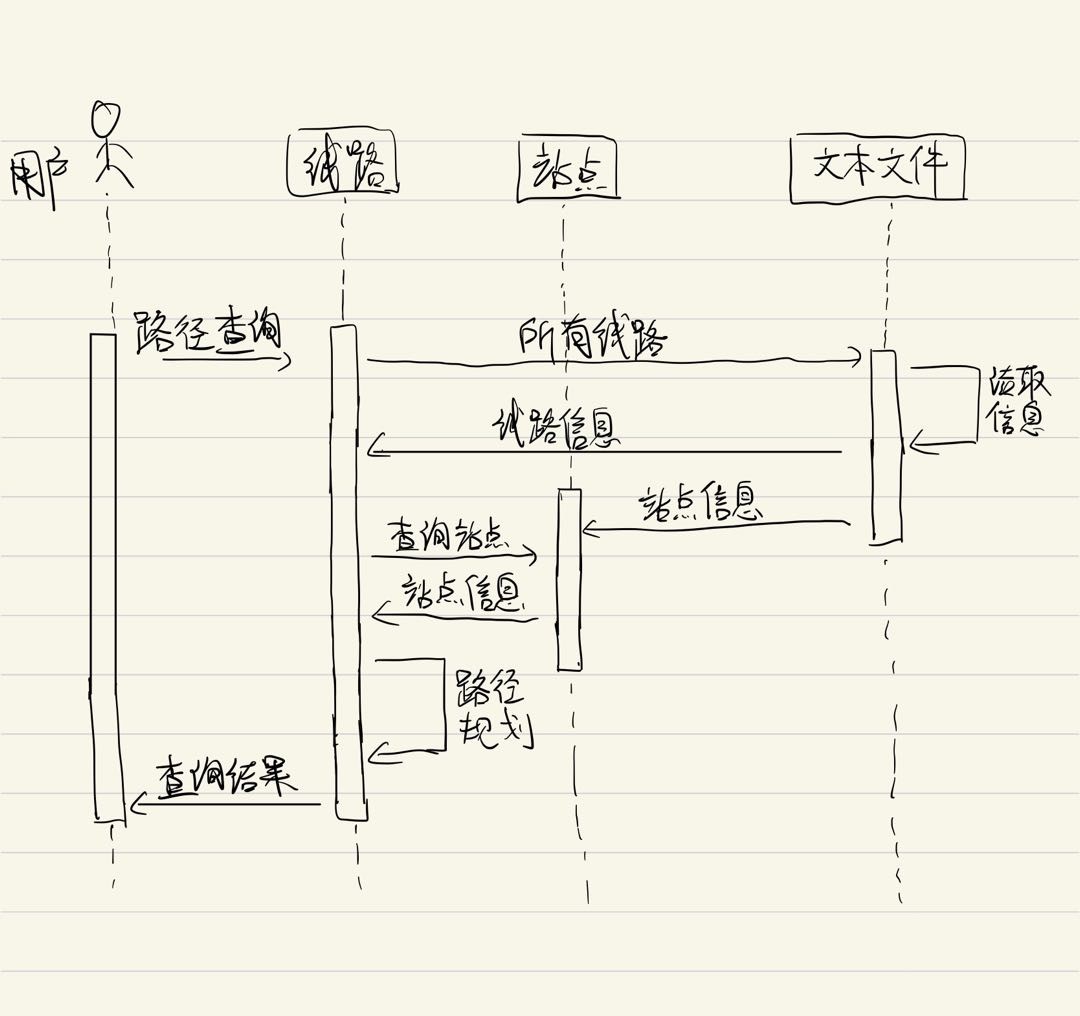 用户
线路
站点
文本文件
路径查询
所有线路
读取
信息
线路信息
站点信息
查询站点
站点信息
路径
规划
查询结果